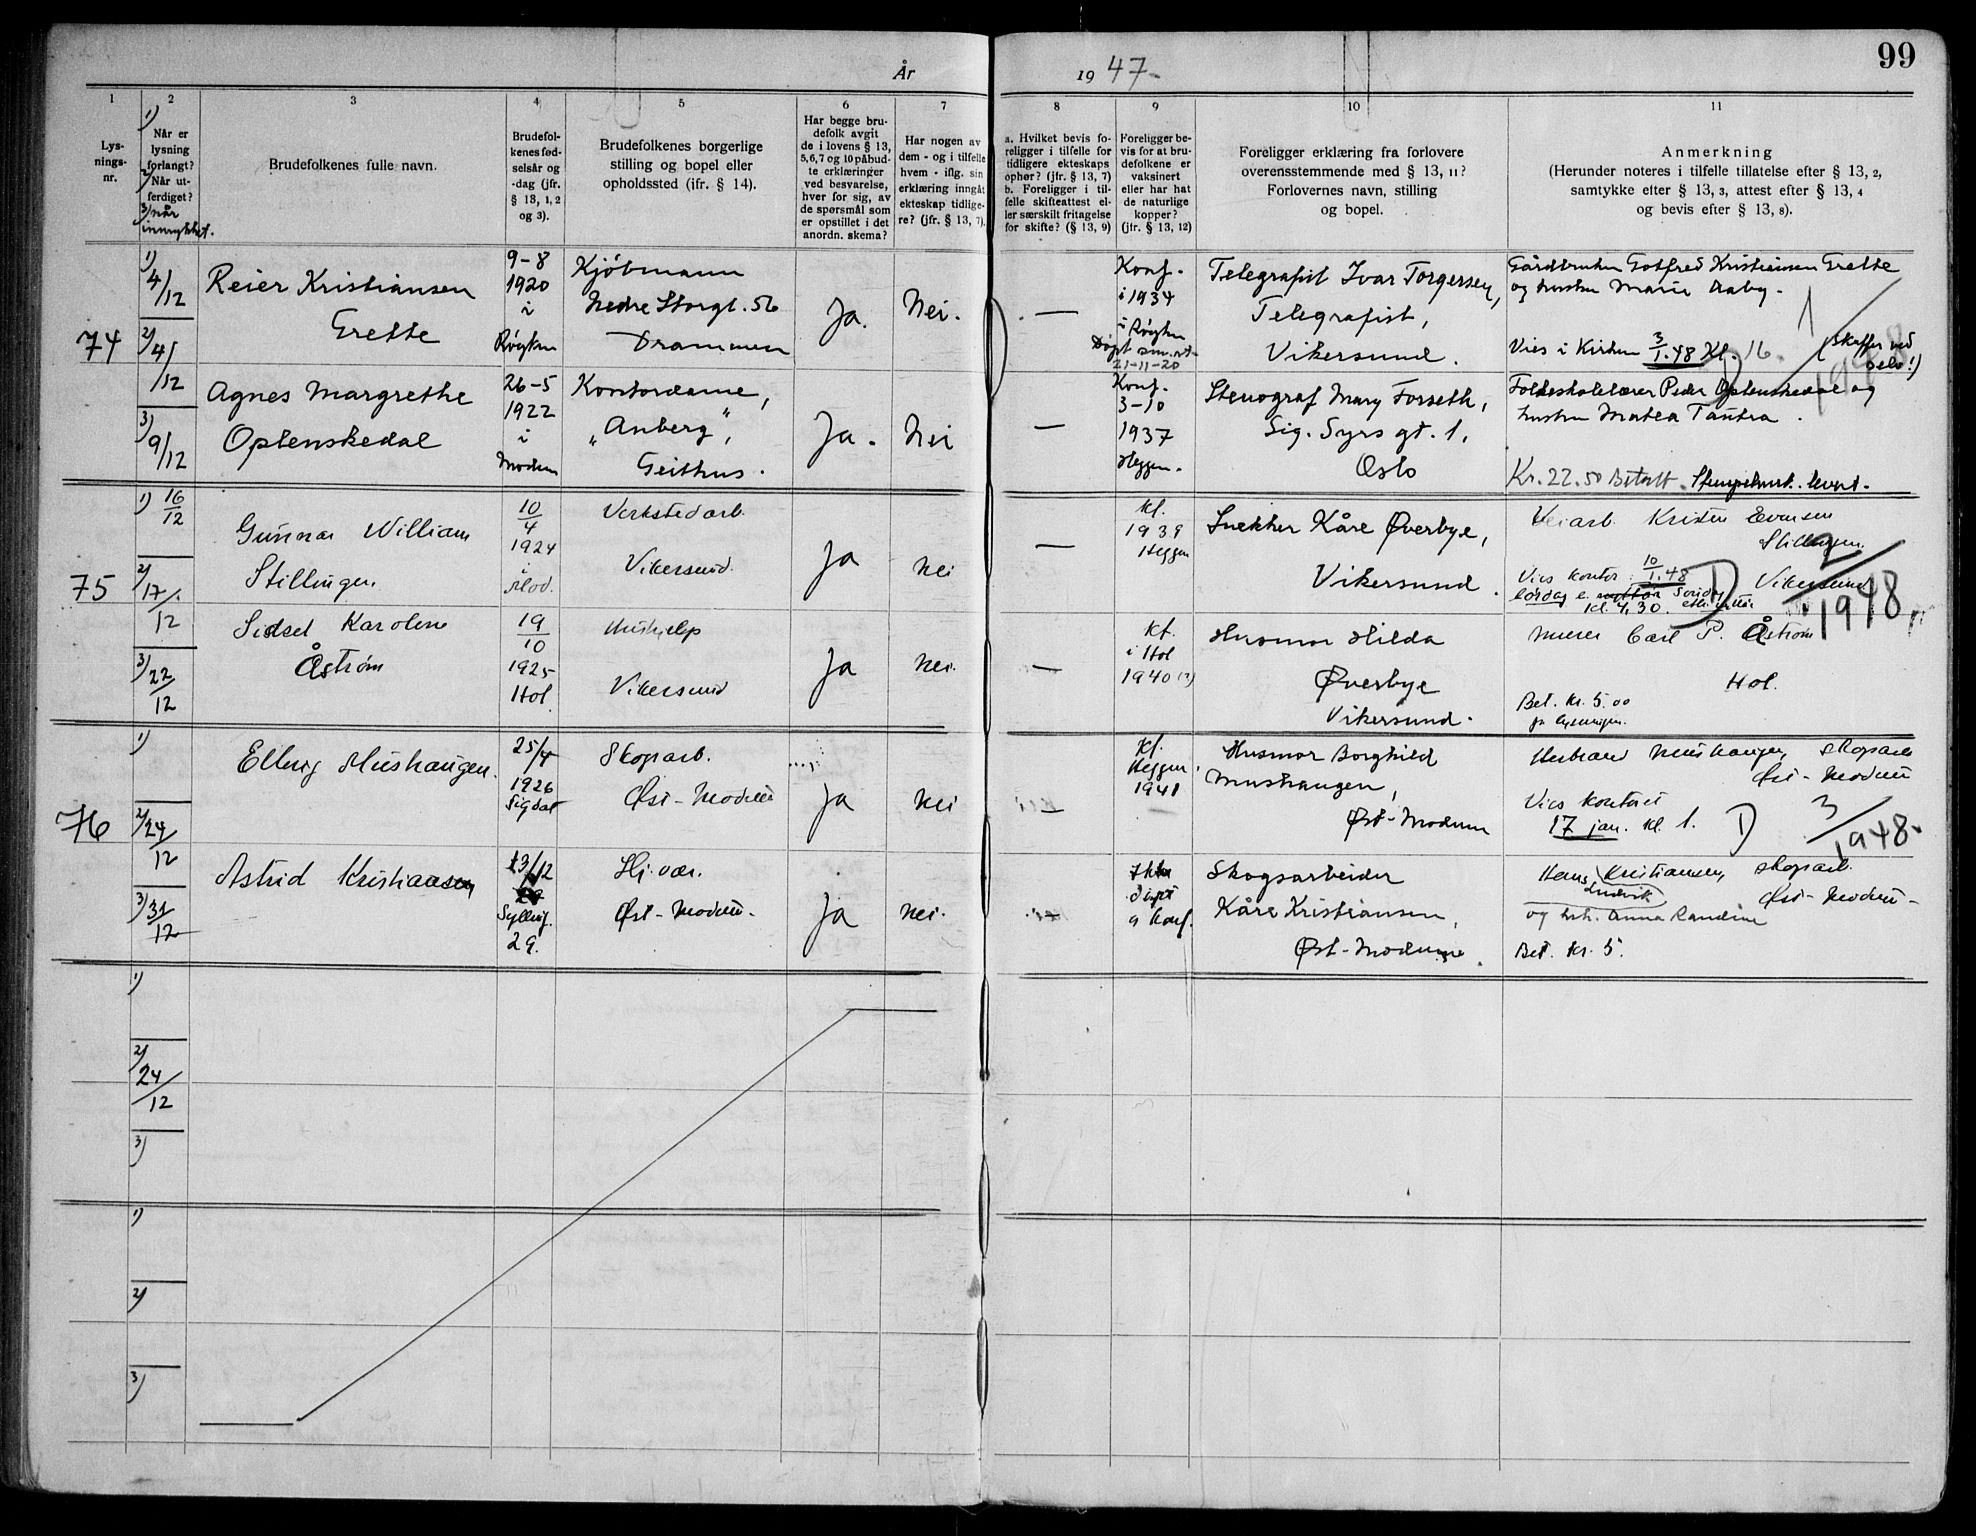 99
År 1947.
1 2 3 4 5 6 7 8 9 10 11
Lys-
nings-
nr.
1) Når er
lysning
forlangt?
2) Når ut-
ferdiget?
3) når
innrykket.
Brudefolkenes fulle navn.
Brudefol-
kenes fød-
selsår og
-dag (jfr.
§ 13, 1, 2
og 3).
Brudefolkenes borgerlige
stilling og bopel eller
opholdssted (ifr. § 14).
Har begge bru-
defolk avgit
de i lovens § 13,
5,6,7 og 10 påbud-
te erklæringer
ved besvarelse,
hver for sig, av
de spørsmål som
er opstillet i det
anordn. skema?
Har nogen av
dem - og i tilfelle
hvem - iflg. sin
erklæring inngåt
ekteskap tidlige-
re? (jfr. § 13, 7).
a. Hvilket bevis fo-
religger i tilfelle for
tidligere ekteskaps
ophør? (jfr. § 13, 7)
b. Foreligger i til-
felle skifteattest el-
ler særskilt fritagelse
for skifte? (§ 13, 9)
Foreligger be-
vis for at bru-
defolkene er
vaksinert
eller har hat
de naturlige
kopper?
(jfr. § 13, 12)
Foreligger erklæring fra forlovere
overensstemmende med § 13, 11?
Forlovernes navn, stilling
og bopel.
Anmerkning
(Herunder noteres i tilfelle tillatelse efter § 13, 2,
samtykke efter § 13, 3, attest efter § 13, 4
og bevis efter § 13, 8).
74
1) 4/12
2) 4/12
3) 9/12
Reier Kristiansen
Grette
9-8
1920
i
Røyken
Kjøbmann
Nedre Storgt. 56
Drammen
Ja.
Nei.
—
Konf.
i 1934
i Røyken
Døpt sm. st.
21-11-20
Telegrafist Ivar Torgersen,
Telegrafist,
Vikersund.
Gårdbruker Gotfred Kristiansen Grette
og hustru Marie Aaby.
Vies i Kirken 3/1.48 Kl. 16. (Skaffer ved
selv!)
1/1948
Agnes Margrethe
Oplenskedal
26-5
1922
i
Modum
Kontordame,
"Anberg",
Geithus.
Ja.
Nei
—
Konf.
3-10
1937
Heggen.
Stenograf Mary Forseth,
Sig. Syrs gt. 1,
Oslo
Folkeskolelærer Peder Oplenskedal og
hustru Matea Tandra.
Kr. 22.50 Betalt.
75
1) 16/12
2) 17/12
3) 22/12
Gunnar William
Stillingen.
10/4
1924
i
Mod.
Verkstedarb.
Vikersund.
Ja
Nei
—
Kf.
1939
Heggen
Snekker Kåre Øverbye,
Vikersund.
Veiarb. Kristen Evensen
Stillingen.
Vikersund
Vies kontor. 10/1.48
lørdag e.
Kl. 4.30.
D
2/1948
Sidsel Karoline
Åstrøm
19/10
1925
Hol.
Hushjelp
Vikersund
Ja
Nei.
—
Kf.
i Hol
1940 (?)
Husmor Hilda
Øverbye
Vikersund.
Murer Carl P. Åstrøm
Hol.
Bet. Kr. 5.00
for lysningen.
76
1)
2) 24/12
3) 31/12
Ellevig Mushaugen.
25/4
1926
Sigdal
Skogarb.
Øst-Modum
Ja
Nei
—
Kf.
Heggen.
1941
Husmor Borghild
Mushaugen,
Øst-Modum
Herbrand Mushaugen, skogarb
Øst-Modum
Vies kontoret
17 jan. kl. 1.
D
3/1948.
Astrid Kristiansen
13/12
Sylling.
29.
Hj. vær.
Øst-Modum.
Ja
Nei.
—
Ikke
døpt
o konf.
Skogsarbeider
Kåre Kristiansen,
Øst-Modum.
Hans Ludvik Kristiansen, skogarb.
Øst-Modum
og hst. Anna Randine
Bet. Kr. 5.
1)
2) 24/12
3)
1)
2)
3)